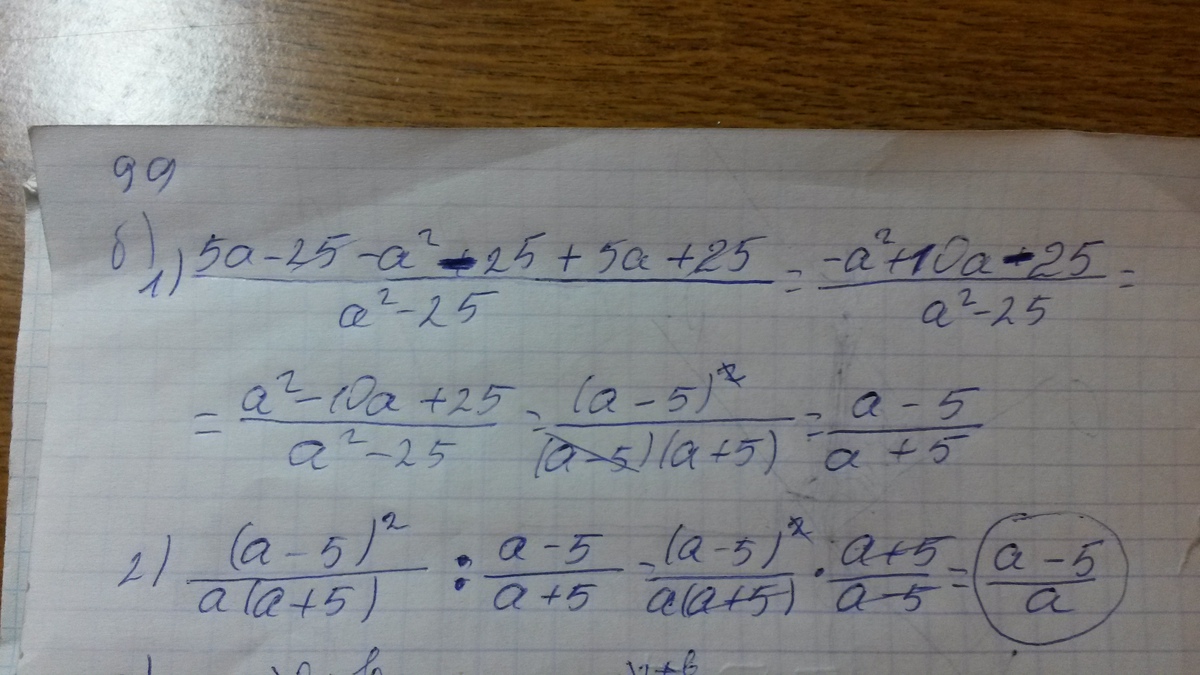 99
б) 1) (5a - 25 - a² - 25 + 5a + 25)/(a² - 25) = (-a² + 10a - 25)/(a² - 25) =
= (a² - 10a + 25)/(a² - 25) = (a - 5)²/((a - 5)(a + 5)) = (a - 5)/(a + 5)
2) (a - 5)²/(a(a + 5)) : (a - 5)/(a + 5) = (a - 5)²/(a(a + 5)) · (a + 5)/(a - 5) = (a - 5)/a